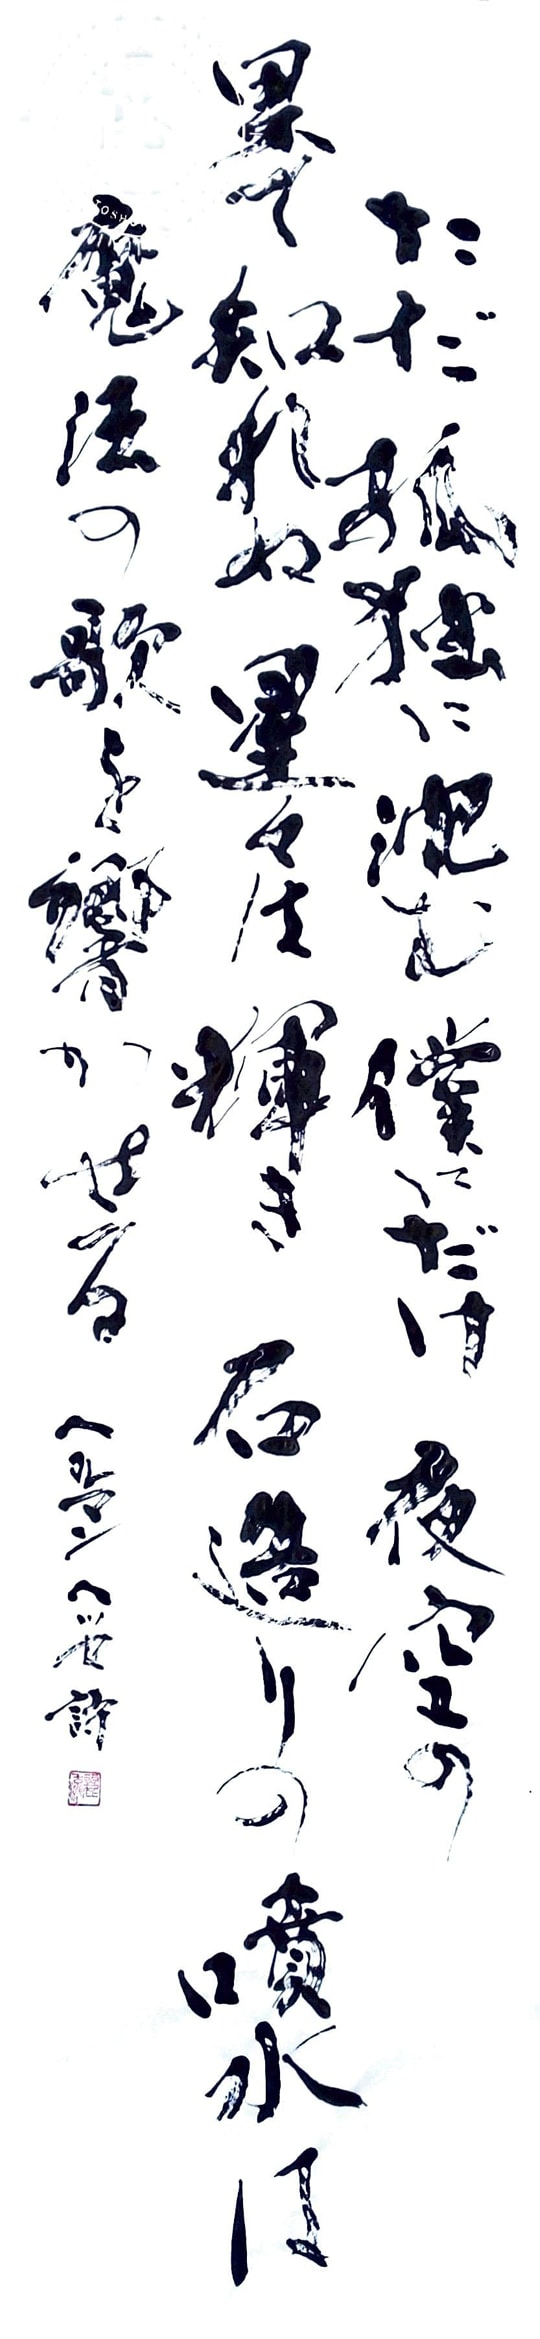 ただ孤独に沈む僕にだけ夜空の
果て知れぬ星々は輝き石造りの噴水は
魔法の歌を響かせる
ヘルマンヘッセ詩